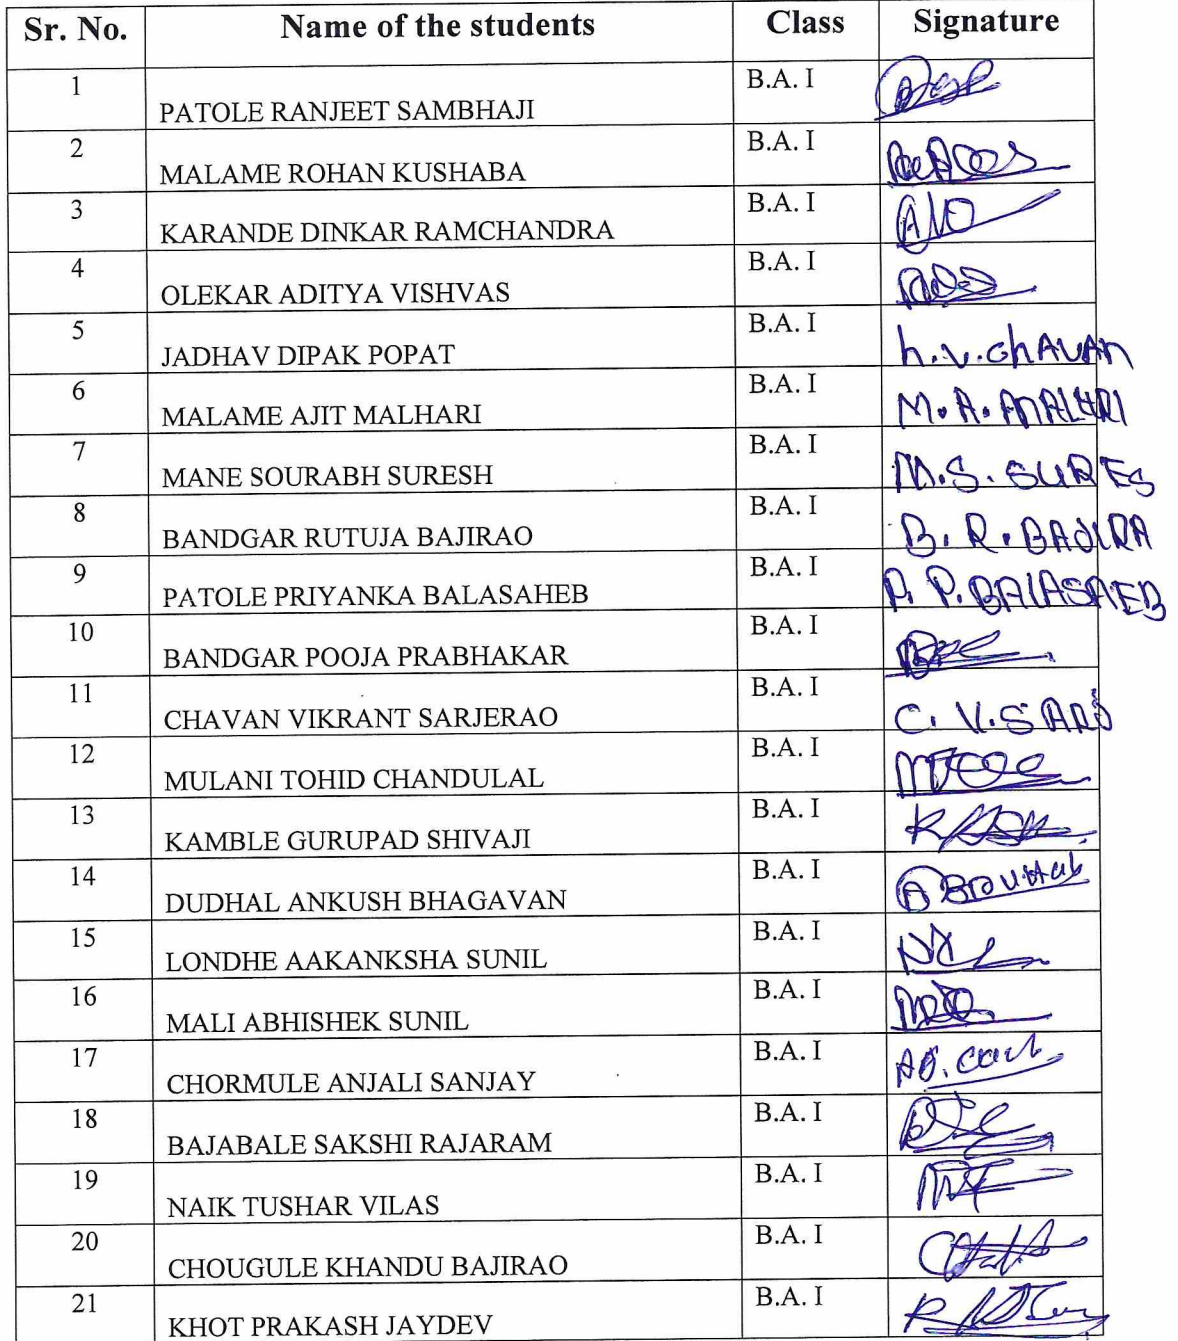 Sr. No. Name of the students Class Signature
1 PATOLE RANJEET SAMBHAJI B.A. I
2 MALAME ROHAN KUSHABA B.A. I
3 KARANDE DINKAR RAMCHANDRA B.A. I
4 OLEKAR ADITYA VISHVAS B.A. I
5 JADHAV DIPAK POPAT B.A. I h.v.chAVAn
6 MALAME AJIT MALHARI B.A. I M. A.
7 MANE SOURABH SURESH B.A. I M.S. SURES
8 BANDGAR RUTUJA BAJIRAO B.A. I B. R. BAJIRA
9 PATOLE PRIYANKA BALASAHEB B.A. I P. P. BALASAEB
10 BANDGAR POOJA PRABHAKAR B.A. I
11 CHAVAN VIKRANT SARJERAO B.A. I C. V. SARJ
12 MULANI TOHID CHANDULAL B.A. I
13 KAMBLE GURUPAD SHIVAJI B.A. I
14 DUDHAL ANKUSH BHAGAVAN B.A. I
15 LONDHE AAKANKSHA SUNIL B.A. I
16 MALI ABHISHEK SUNIL B.A. I
17 CHORMULE ANJALI SANJAY B.A. I
18 BAJABALE SAKSHI RAJARAM B.A. I
19 NAIK TUSHAR VILAS B.A. I
20 CHOUGULE KHANDU BAJIRAO B.A. I
21 KHOT PRAKASH JAYDEV B.A. I